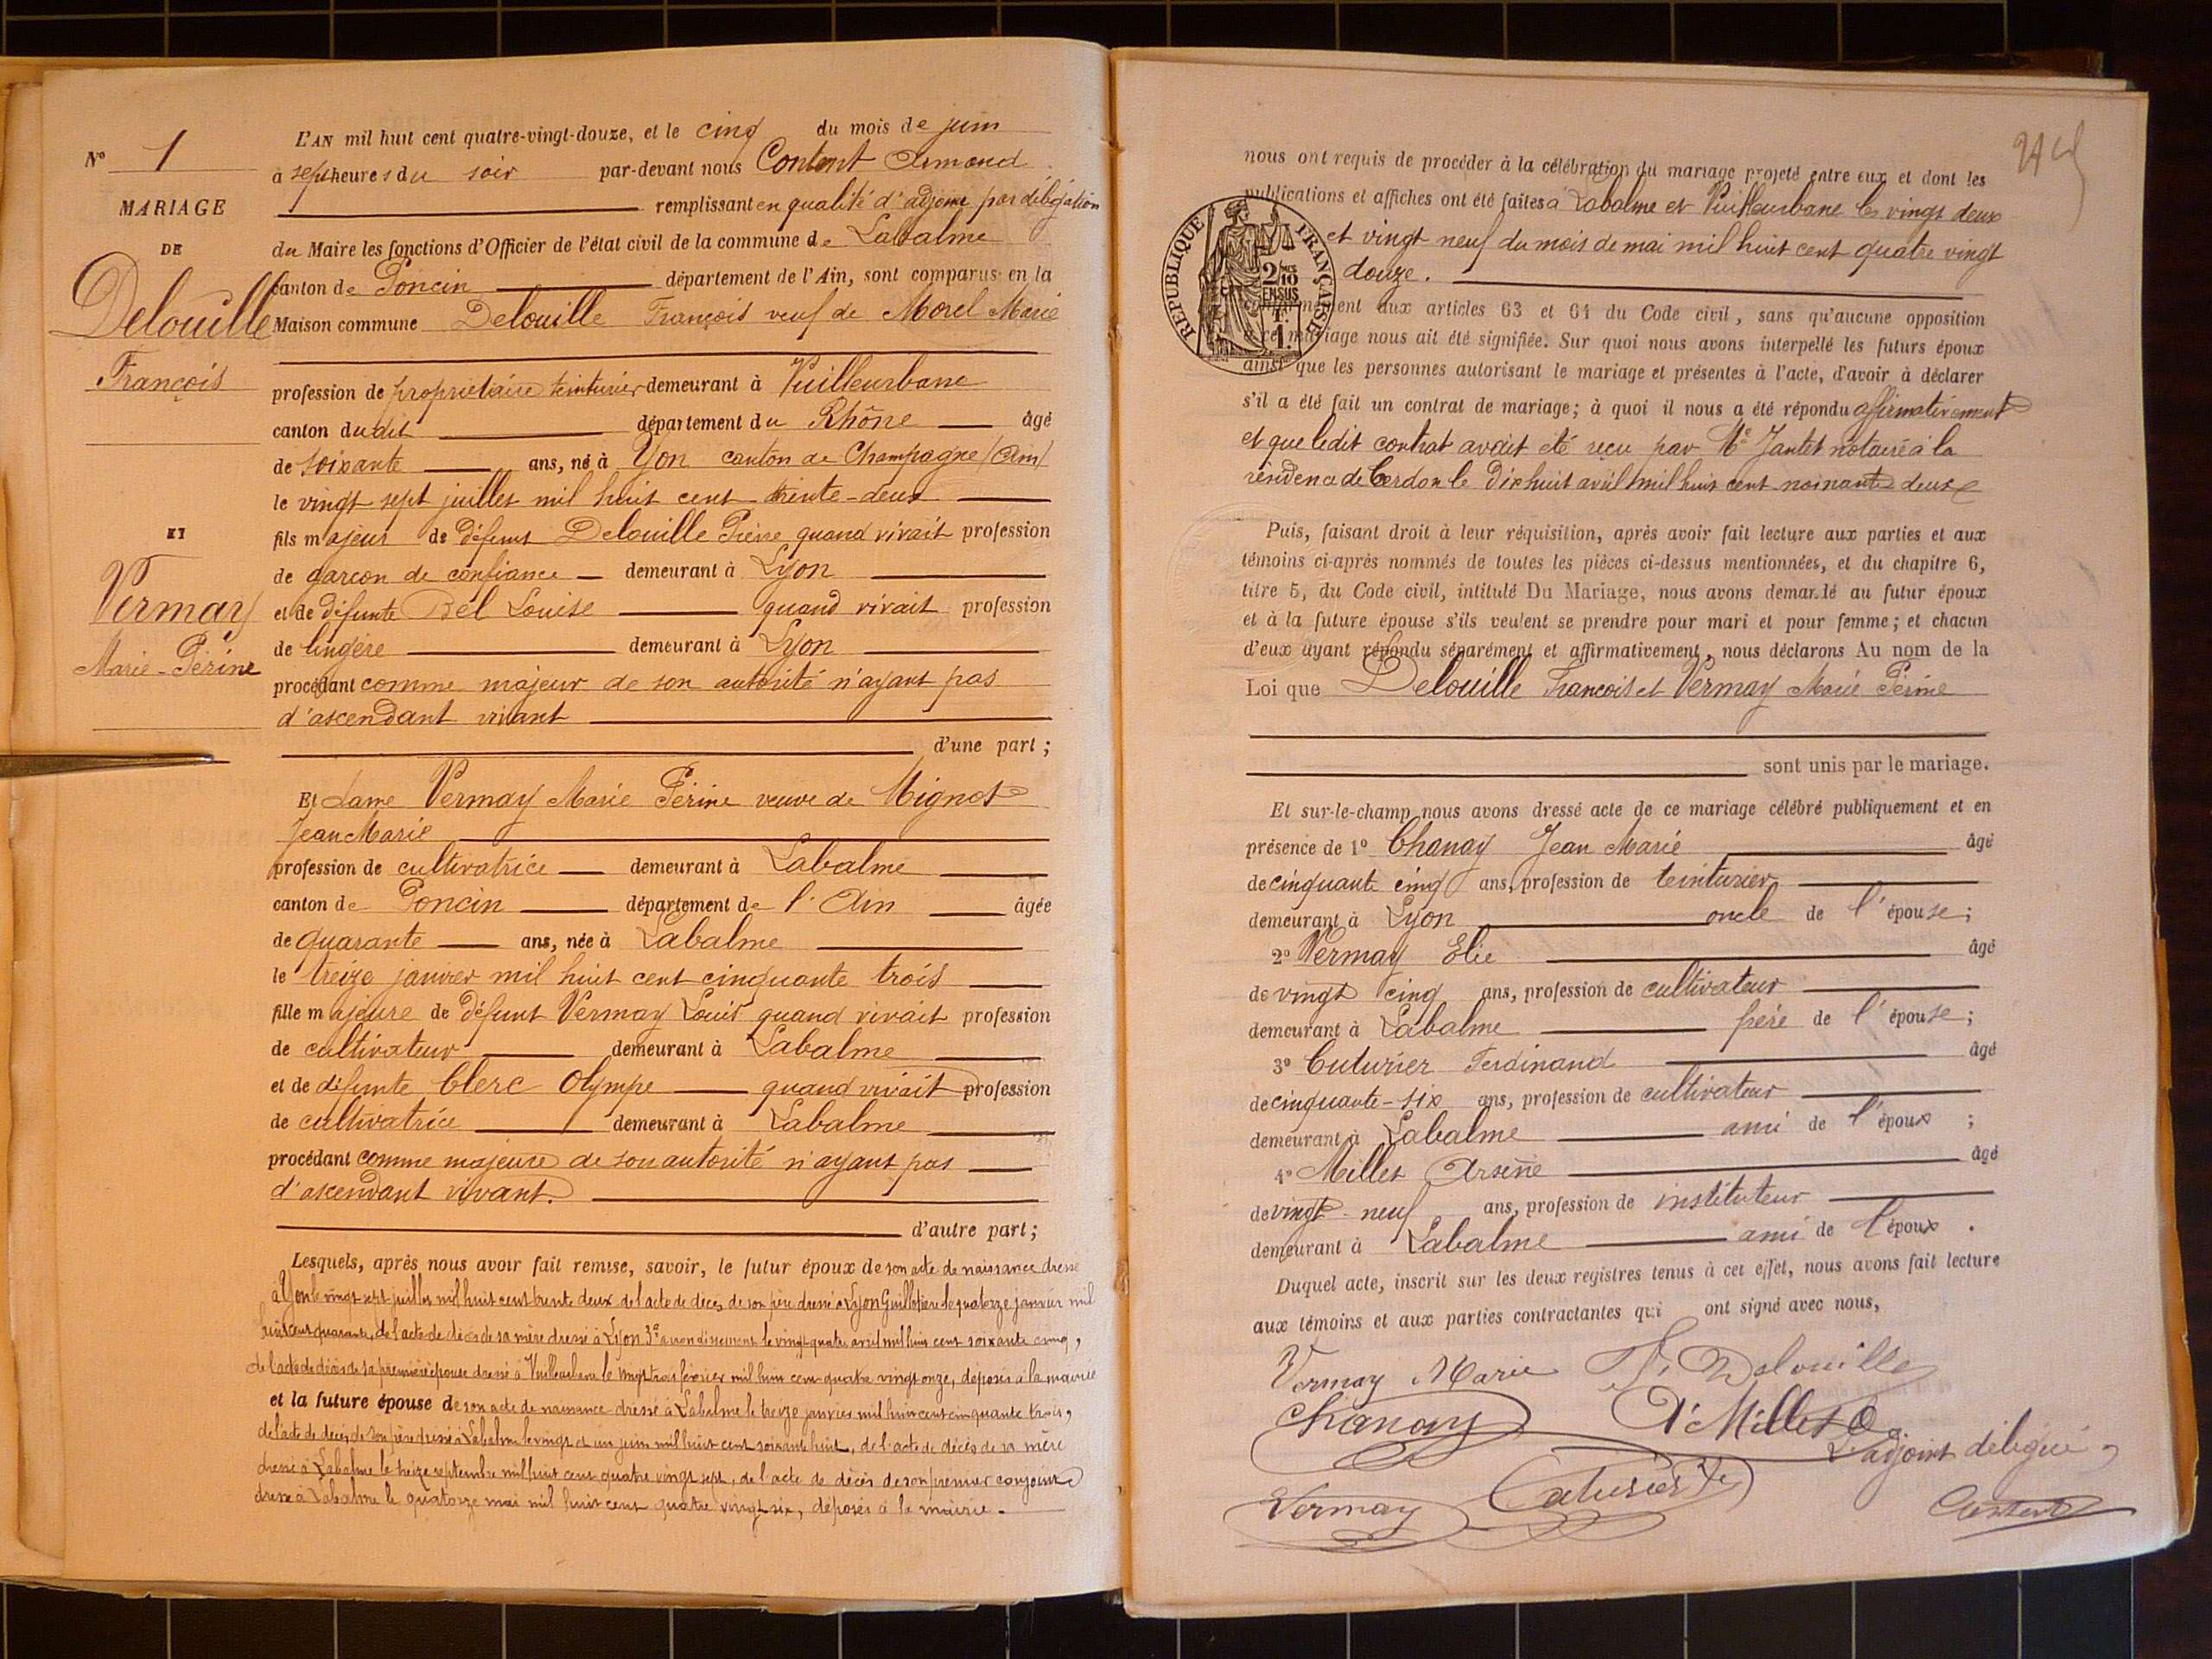 N° 1
MARIAGE
DE
Delouille
François
ET
Vermay
Marie-Périne
L'AN mil huit cent quatre-vingt-douze, et le cinq du mois de juin
à sept heures du soir par-devant nous Content Armand
remplissant en qualité d'adjoint par délégation
du Maire les fonctions d'Officier de l'état civil de la commune de Labalme
canton de Poncin département de l'Ain, sont comparus en la
Maison commune Delouille François veuf de Morel Marie
profession de propriétaire teinturier demeurant à Vuilleurbane
canton dudit département du Rhône âgé
de soixante ans, né à Yon canton de Champagne (Ain)
le vingt sept juillet mil huit cent trente-deux
fils majeur de défunt Delouille Pierre quand vivait profession
de garcon de confiance demeurant à Lyon
et de défunte Bel Louise quand vivait profession
de lingère demeurant à Lyon
procédant comme majeur de son autorité n'ayant pas
d'ascendant vivant
d'une part ;
Et Dame Vermay Marie Périne veuve de Mignot
Jean Marie
profession de cultivatrice demeurant à Labalme
canton de Poncin département de l'Ain âgée
de quarante ans, née à Labalme
le treize janvier mil huit cent cinquante trois
fille majeure de défunt Vermay Louis quand vivait profession
de cultivateur demeurant à Labalme
et de défunte Clerc Olympe quand vivait profession
de cultivatrice demeurant à Labalme
procédant comme majeure de son autorité n'ayant pas
d'ascendant vivant.
d'autre part ;
Lesquels, après nous avoir fait remise, savoir, le futur époux de son acte de naissance dressé
à Yon le vingt sept juillet mil huit cent trente deux, de l'acte de décès de son père dressé à Lyon Guillotière le quatorze janvier mil
huit cent quarante, de l'acte de décès de sa mère dressé à Lyon 3e arrondissement le vingt quatre avril mil huit cent soixante cinq,
de l'acte de décès de sa première épouse dressé à Vuilleurbane le vingt trois février mil huit cent quatre vingt onze, déposés à la mairie
et la future épouse de son acte de naissance dressé à Labalme le treize janvier mil huit cent cinquante trois,
de l'acte de décès de son père dressé à Labalme le vingt et un juin mil huit cent soixante huit, de l'acte de décès de sa mère
dressé à Labalme le treize septembre mil huit cent quatre vingt sept, de l'acte de décès de son premier conjoint
dressé à Labalme le quatorze mai mil huit cent quatre vingt six, déposés à la mairie.
nous ont requis de procéder à la célébration du mariage projeté entre eux et dont les
publications et affiches ont été faites à Labalme et Vuilleurbane les vingt deux
et vingt neuf du mois de mai mil huit cent quatre vingt
douze.
RÉPUBLIQUE FRANÇAISE
2/10
EN SUS
1.
conformément aux articles 63 et 64 du Code civil, sans qu'aucune opposition
à ce mariage nous ait été signifiée. Sur quoi nous avons interpellé les futurs époux
ainsi que les personnes autorisant le mariage et présentes à l'acte, d'avoir à déclarer
s'il a été fait un contrat de mariage ; à quoi il nous a été répondu affirmativement
et que ledit contrat avait été reçu par Me Jantet notaire à la
résidence de Cerdon le dix huit avril mil huit cent nonante deux
Puis, faisant droit à leur réquisition, après avoir fait lecture aux parties et aux
témoins ci-après nommés de toutes les pièces ci-dessus mentionnées, et du chapitre 6,
titre 5, du Code civil, intitulé Du Mariage, nous avons demandé au futur époux
et à la future épouse s'ils veulent se prendre pour mari et pour femme ; et chacun
d'eux ayant répondu séparément et affirmativement, nous déclarons Au nom de la
Loi que Delouille François et Vermay Marie Périne
sont unis par le mariage.
Et sur-le-champ nous avons dressé acte de ce mariage célébré publiquement et en
présence de 1° Chanay Jean Marie âgé
de cinquante cinq ans, profession de teinturier
demeurant à Lyon oncle de l'épouse ;
2° Vermay Elie âgé
de vingt cinq ans, profession de cultivateur
demeurant à Labalme frère de l'épouse ;
3° Cuturier Ferdinand âgé
de cinquante-six ans, profession de cultivateur
demeurant à Labalme ami de l'époux ;
4° Millet Arsène âgé
de vingt-neuf ans, profession de instituteur
demeurant à Labalme ami de l'époux.
Duquel acte, inscrit sur les deux registres tenus à cet effet, nous avons fait lecture
aux témoins et aux parties contractantes qui ont signé avec nous,
Vermay Marie F. Delouille
Chanay A. Millet
L'adjoint délégué,
Vermay Cuturier Fd Content